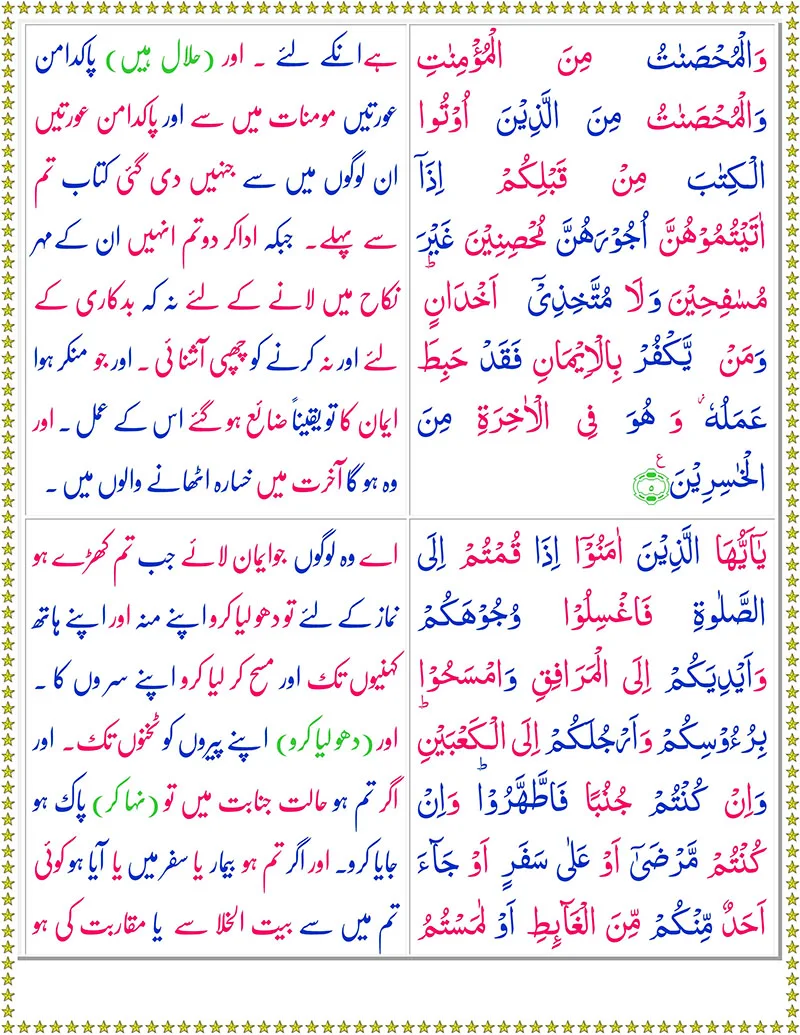 وَالْمُحْصَنٰتُ مِنَ الْمُؤْمِنٰتِ
وَالْمُحْصَنٰتُ مِنَ الَّذِيْنَ اُوْتُوا
الْكِتٰبَ مِنْ قَبْلِكُمْ اِذَآ
اٰتَيْتُمُوْهُنَّ اُجُوْرَهُنَّ مُحْصِنِيْنَ غَيْرَ
مُسٰفِحِيْنَ وَلَا مُتَّخِذِيْٓ اَخْدَانٍ ؕ
وَمَنْ يَّكْفُرْ بِالْاِيْمَانِ فَقَدْ حَبِطَ
عَمَلُهٗ ؗ وَ هُوَ فِى الْاٰخِرَةِ مِنَ
الْخٰسِرِيْنَ ۵ ع
ہے انکے لئے ۔ اور (حلال ہیں) پاکدامن
عورتیں مومنات میں سے اور پاکدامن عورتیں
ان لوگوں میں سے جنہیں دی گئی کتاب تم
سے پہلے۔ جبکہ ادا کر دو تم انہیں ان کے مہر
نکاح میں لانے کے لئے نہ کہ بدکاری کے
لئے اور نہ کرنے کو چھپی آشنائی ۔ اور جو منکر ہوا
ایمان کا تو یقیناً ضائع ہو گئے اس کے عمل ۔ اور
وہ ہو گا آخرت میں خسارہ اٹھانے والوں میں ۔
يٰٓاَيُّهَا الَّذِيْنَ اٰمَنُوْٓا اِذَا قُمْتُمْ اِلَى
الصَّلٰوةِ فَاغْسِلُوْا وُجُوْهَكُمْ
وَاَيْدِيَكُمْ اِلَى الْمَرَافِقِ وَامْسَحُوْا
بِرُءُوْسِكُمْ وَاَرْجُلَكُمْ اِلَى الْكَعْبَيْنِ ؕ
وَاِنْ كُنْتُمْ جُنُبًا فَاطَّهَّرُوْا ؕ وَاِنْ
كُنْتُمْ مَّرْضٰٓى اَوْ عَلٰى سَفَرٍ اَوْ جَآءَ
اَحَدٌ مِّنْكُمْ مِّنَ الْغَآىِٕطِ اَوْ لٰمَسْتُمُ
اے وہ لوگوں جو ایمان لائے جب تم کھڑے ہو
نماز کے لئے تو دھو لیا کرو اپنے منہ اور اپنے ہاتھ
کہنیوں تک اور مسح کر لیا کرو اپنے سروں کا ۔
اور (دھو لیا کرو) اپنے پیروں کو ٹخنوں تک۔ اور
اگر تم ہو حالت جنابت میں تو (نہا کر) پاک ہو
جایا کرو۔ اور اگر تم ہو بیمار یا سفر میں یا آیا ہو کوئی
تم میں سے بیت الخلا سے یا مقاربت کی ہو